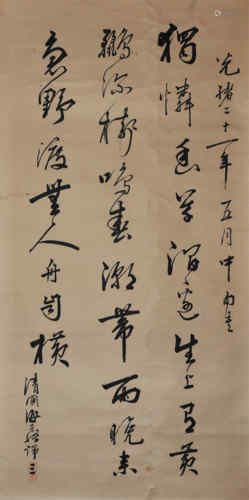 光緒二十一年五月中
獨憐幽草澗邊生上有黃
鸝深樹鳴春潮帶雨晚來
急野渡無人舟自橫
清國海